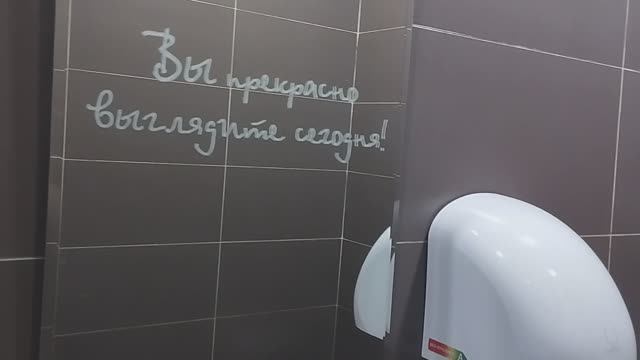 Вы прекрасно
выглядите сегодня!